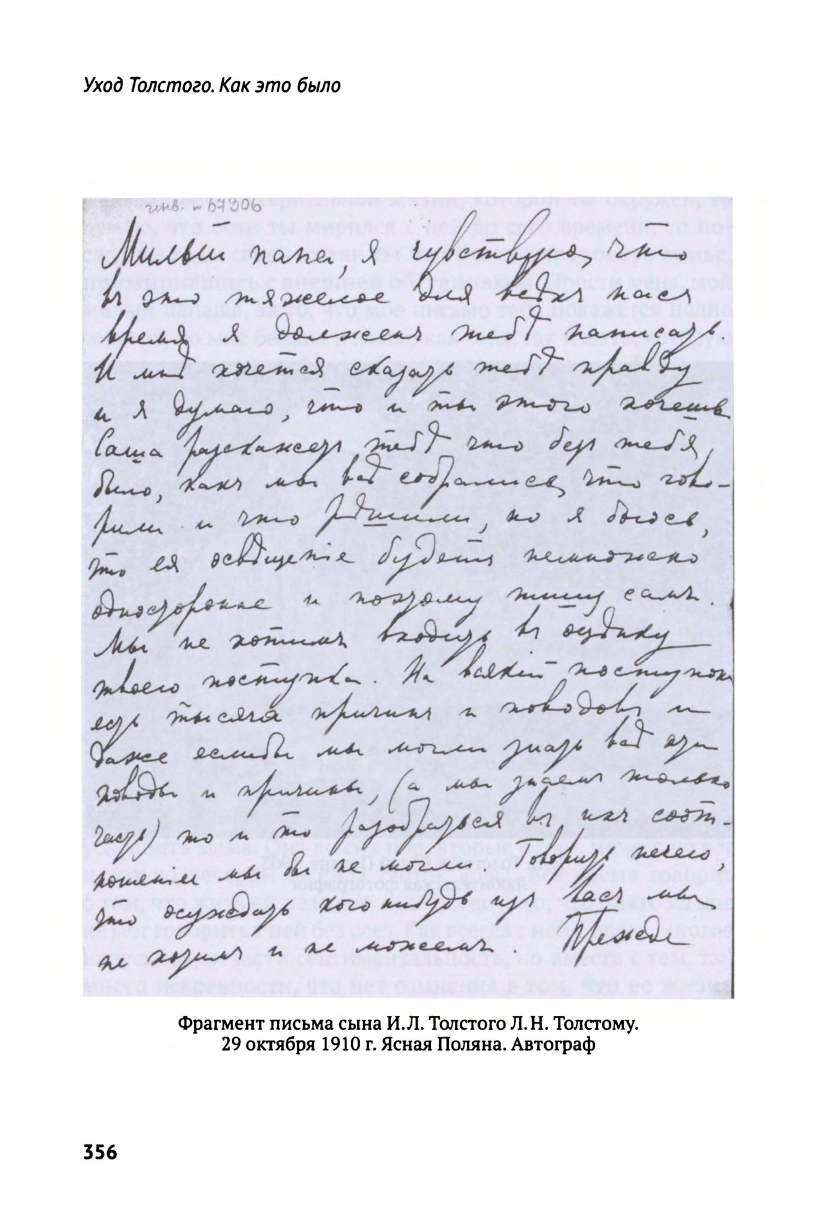 Уход Толстого. Как это было
инв. № 67306
Милый папа, я чувствую, что
въ это тяжелое для всѣхъ насъ
время я долженъ тебѣ написать.
И мнѣ хочется сказать тебѣ правду
и я думаю, что и ты этого хочешь
Саша разскажетъ тебѣ что безъ тебя
было, какъ мы всѣ собрались, что гово-
рили и что рѣшили, но я боюсь,
что ея освѣщеніе будетъ немножко
односторонне и поэтому пишу самъ.
Мы не хотимъ входить въ оцѣнку
твоего поступка. На всякій поступокъ
есть тысяча причинъ и поводовъ и
даже еслибы мы могли знать всѣ эти
поводы и причины, (а мы знаемъ только
часть) то и то разобраться въ ихъ соот-
ношеніи мы бы не могли. Говорить нечего,
что осуждать кого нибудь изъ васъ мы
не хотимъ и не можемъ. Прежде
Фрагмент письма сына И.Л. Толстого Л.Н. Толстому.
29 октября 1910 г. Ясная Поляна. Автограф
356